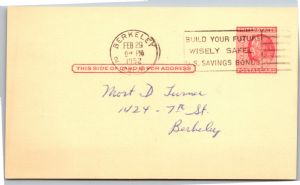 BERKELEY
FEB 29
PM
1952
BUILD YOUR FUTURE
WISELY SAFELY
U.S. SAVINGS BONDS
THIS SIDE OF CARD IS FOR ADDRESS
Most D Turner
1424 - 7th St.
Berkeley